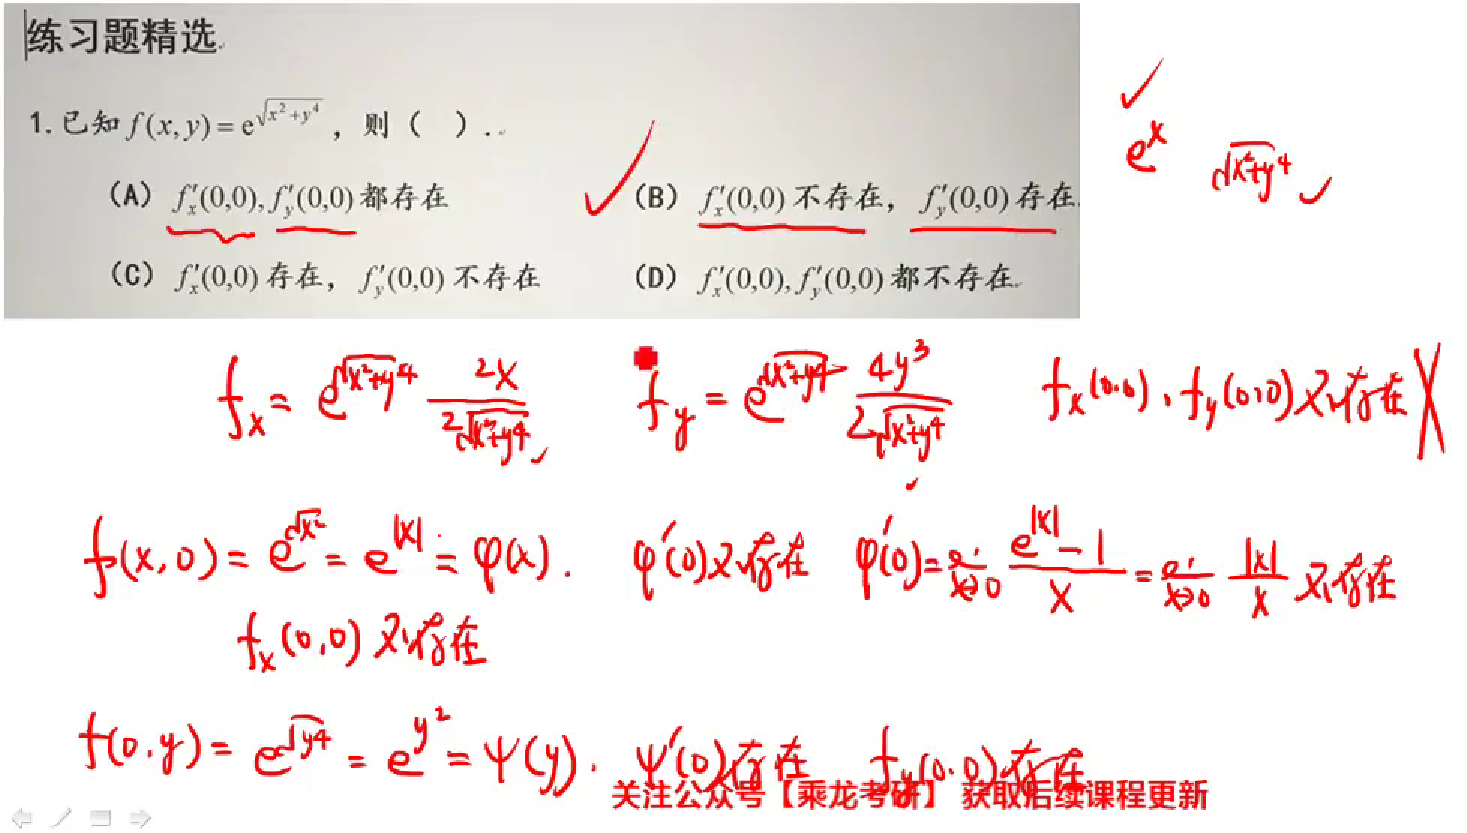 练习题精选
1. 已知 f(x,y)=e^{√(x²+y⁴)}，则（　）.
（A）f′ₓ(0,0), f′ᵧ(0,0) 都存在 （B）f′ₓ(0,0) 不存在，f′ᵧ(0,0) 存在.
（C）f′ₓ(0,0) 存在，f′ᵧ(0,0) 不存在 （D）f′ₓ(0,0), f′ᵧ(0,0) 都不存在.
eˣ √(x²+y⁴)
fₓ = e^{√(x²+y⁴)} 2x/(2√(x²+y⁴)) fᵧ = e^{√(x²+y⁴)} 4y³/(2√(x²+y⁴)) fₓ(0,0), fᵧ(0,0) 不存在
f(x,0) = e^{√x²} = e^{|x|} = φ(x). φ′(0)不存在 φ′(0) = lim_{x→0} (e^{|x|}-1)/x = lim_{x→0} |x|/x 不存在
fₓ(0,0) 不存在
f(0,y) = e^{√y⁴} = e^{y²} = ψ(y). ψ′(0)存在 fᵧ(0,0)存在
关注公众号【乘龙考研】 获取后续课程更新